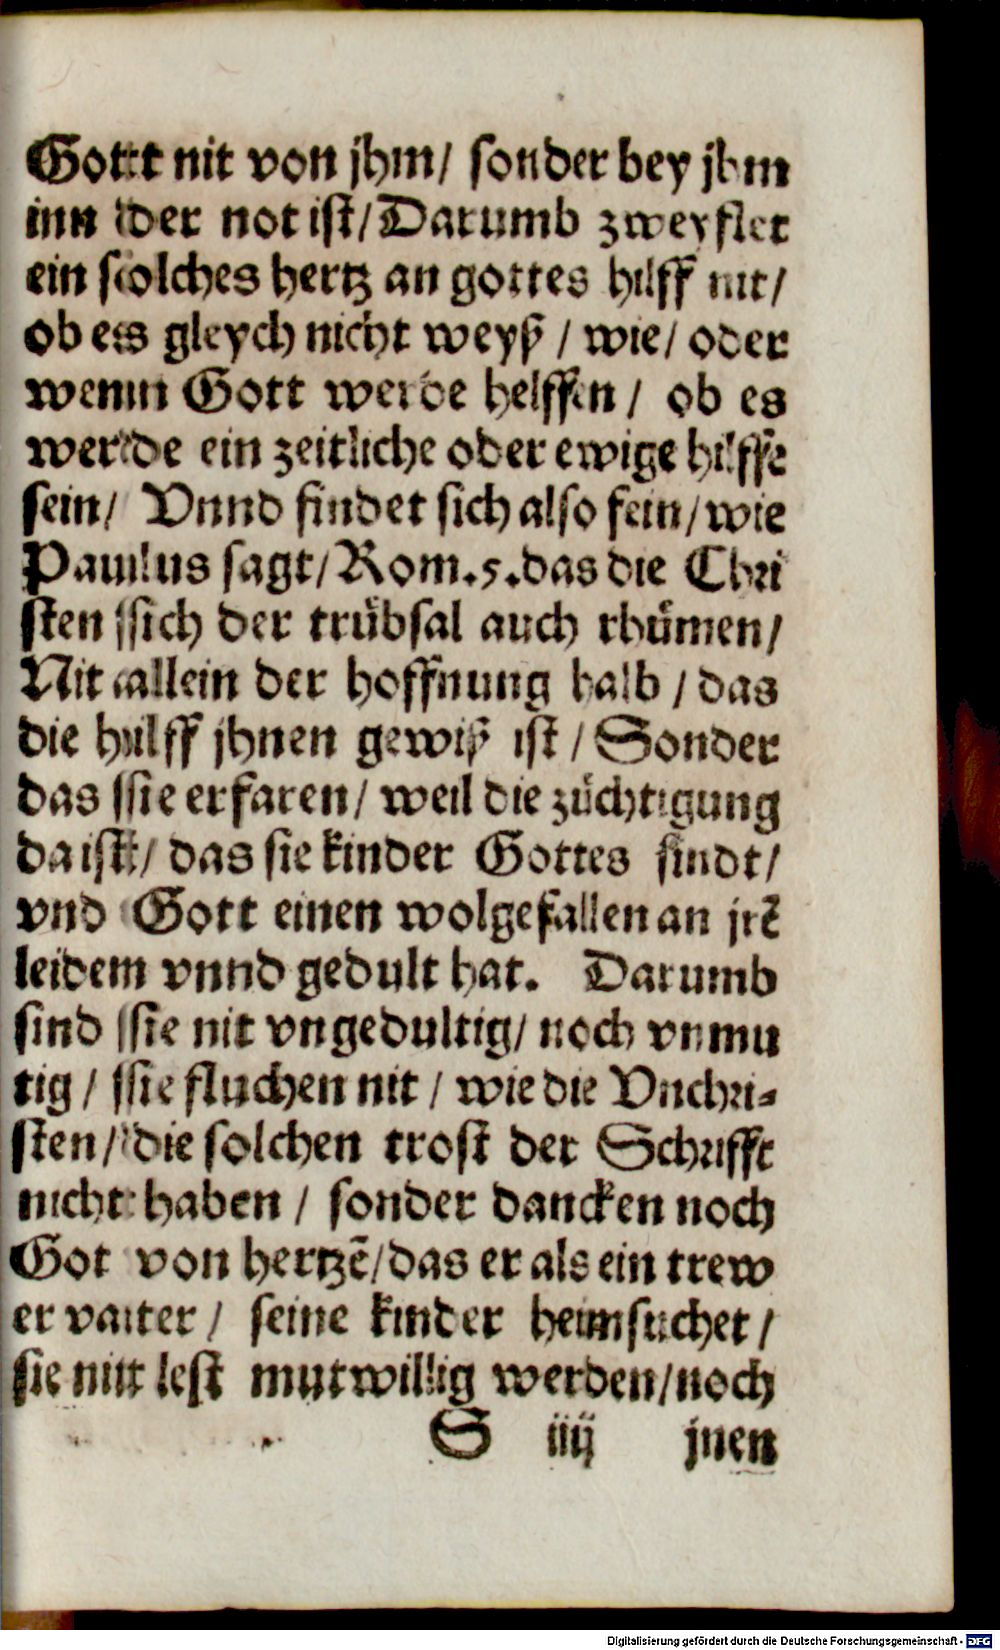 Gott nit von jhm/ sonder bey jhm
inn der not ist/ Darumb zweyflet
ein solches hertz an gottes hilff nit/
ob es gleych nicht weyß / wie/ oder
wenn Gott werde helffen / ob es
werde ein zeitliche oder ewige hilffe
sein/ Vnnd findet sich also fein/ wie
Paulus sagt/ Rom.5.das die Chri
sten sich der trübsal auch rhümen/
Nit allein der hoffnung halb / das
die hülff jhnen gewiß ist / Sonder
das sie erfaren/ weil die züchtigung
da ist/ das sie kinder Gottes sindt/
vnd Gott einen wolgefallen an jrē
leidem vnnd gedult hat. Darumb
sind sie nit vngedultig/ noch vnmu
tig / sie fluchen nit / wie die Vnchri-
sten/ die solchen trost der Schrifft
nicht haben / sonder dancken noch
Got von hertzē/ das er als ein trew
er vatter / seine kinder heimsuchet /
sie nit lest mutwillig werden/ noch
S iiij jnen
Digitalisierung gefördert durch die Deutsche Forschungsgemeinschaft - DFG